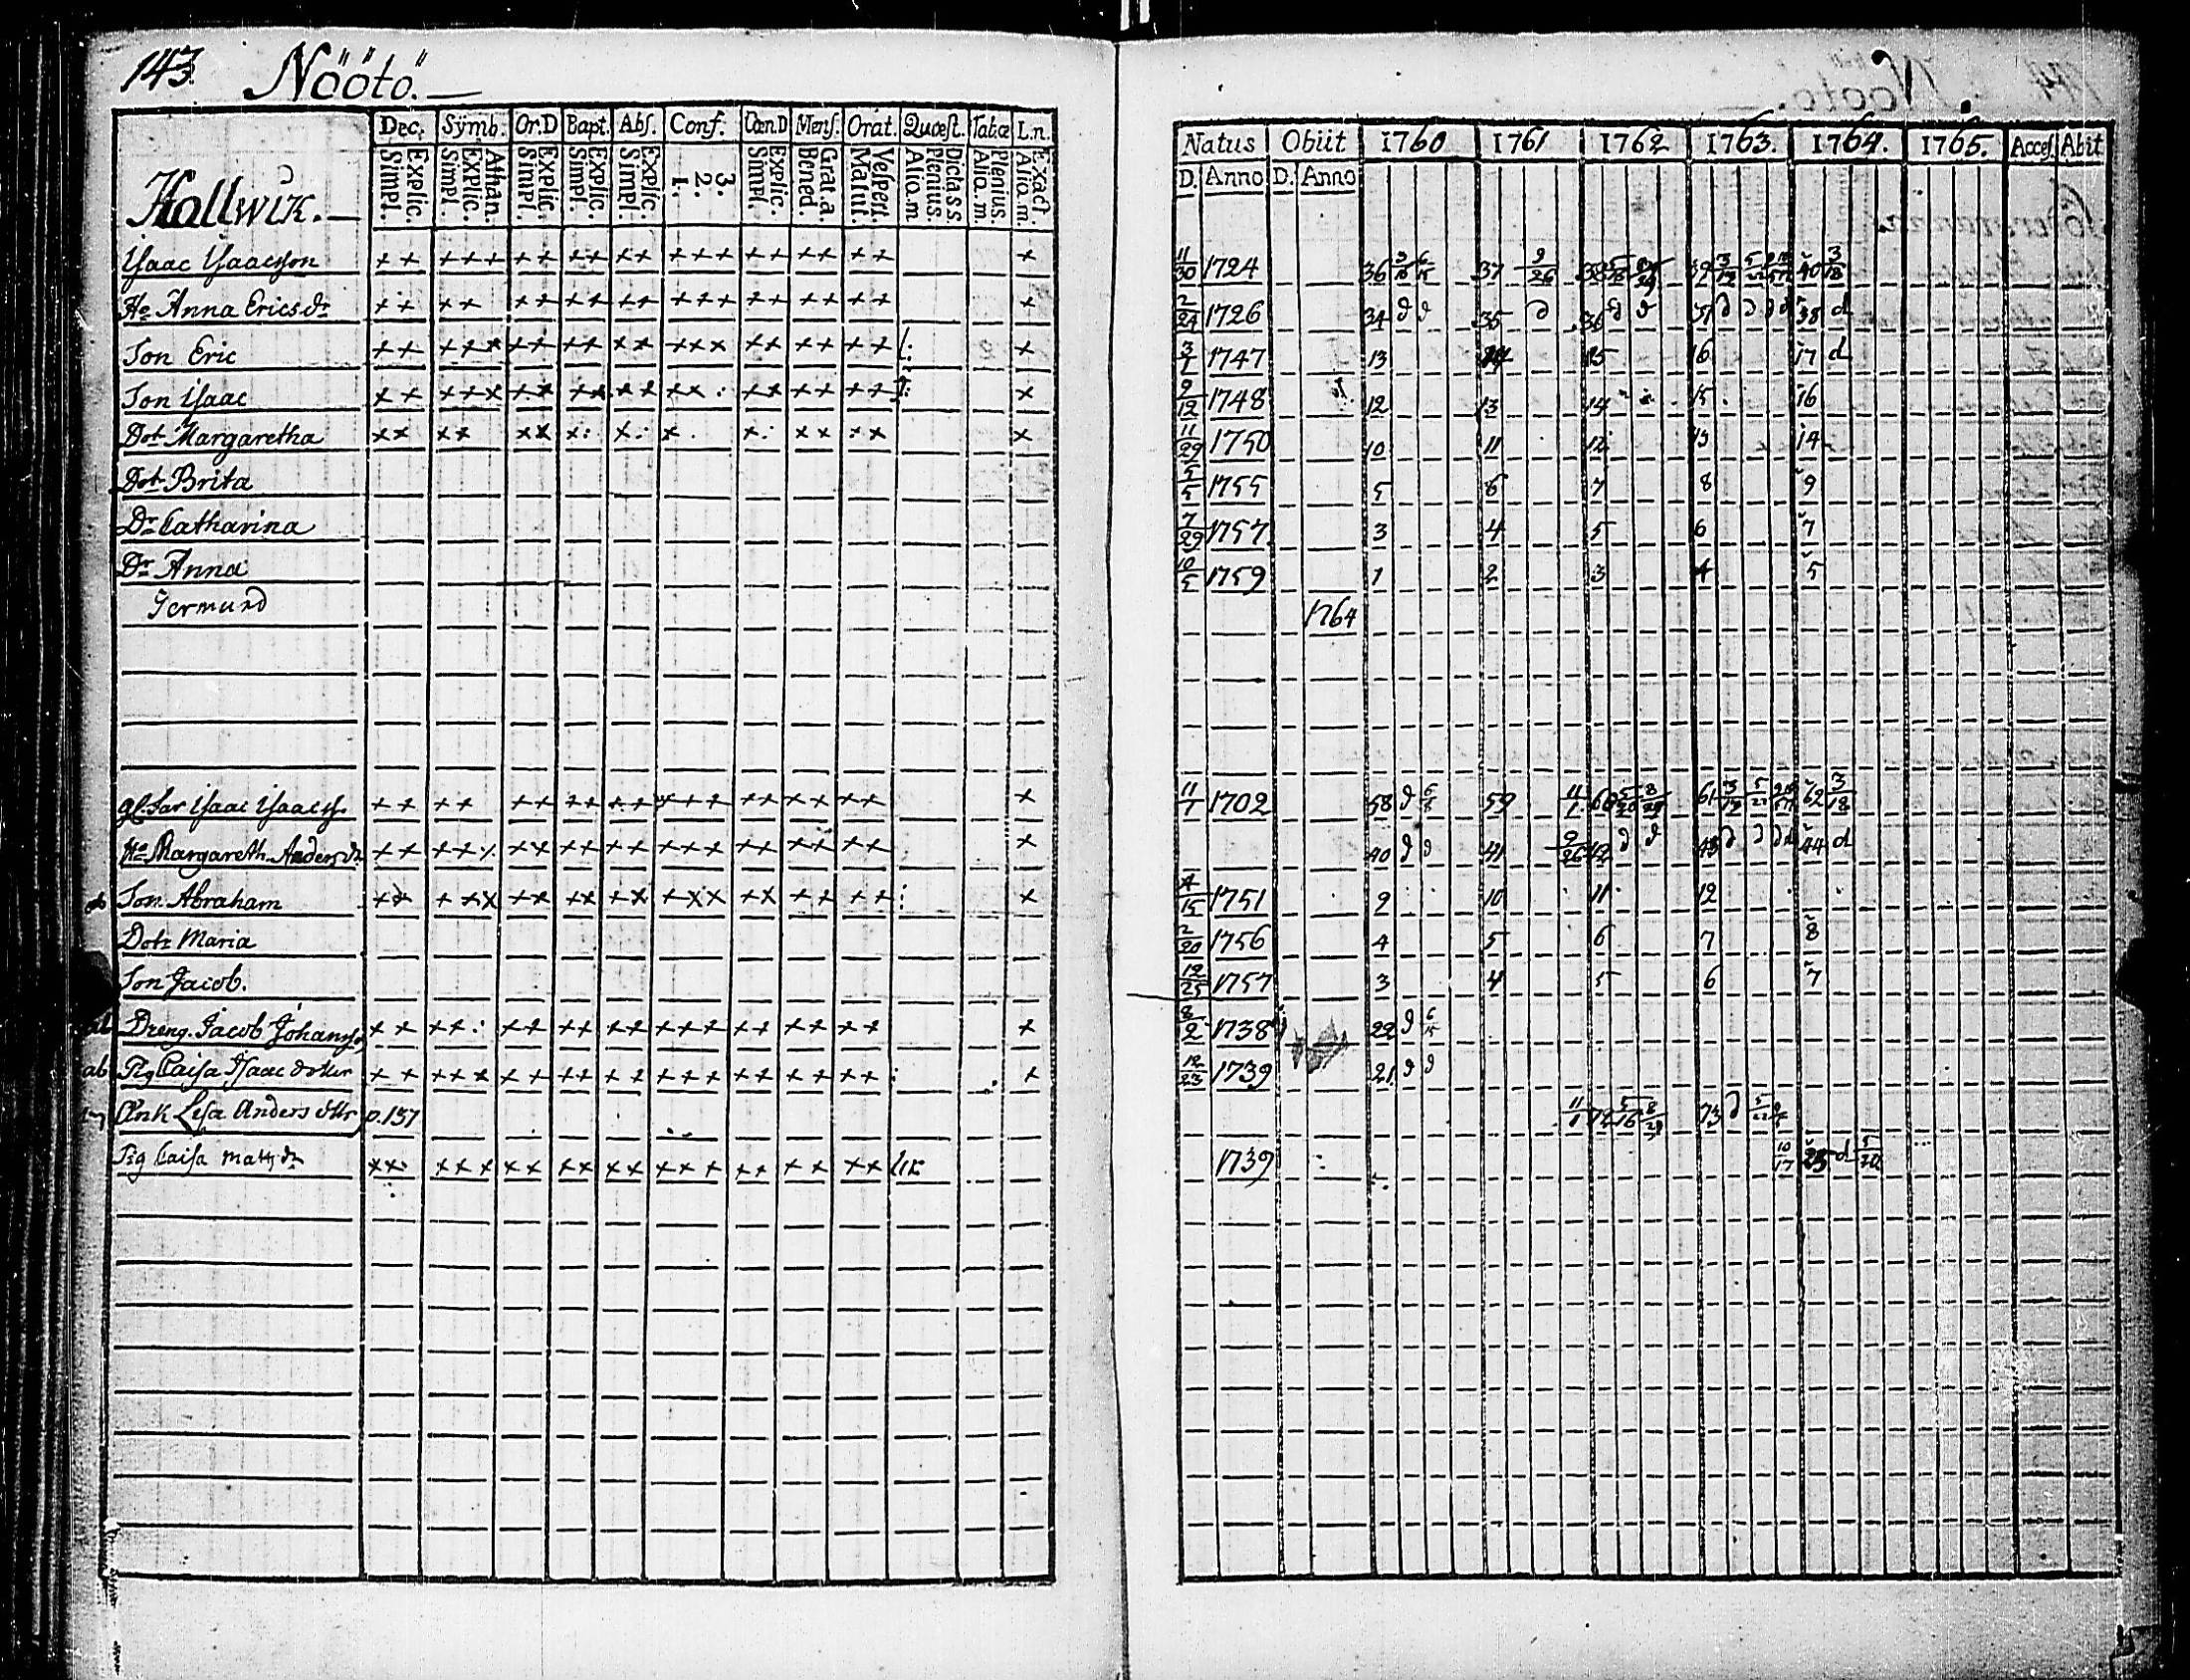 143. Nöötö.
Dec. Sÿmb. Or.D Bapt. Abs. Conf. Cœn.D Mens. Orat. Quæst. Tabæ L.n.
Explic. Simpl. Athan. Explic. Simpl. Explic. Simpl. Explic. Simpl. Explic. Simpl. 3. 2. 1. Explic. Simpl. Grat. a. Bened. Vespert. Matut. Dicta s s. Plenius. Aliq. m. Plenius. Aliq. m. Exact Aliq. m.
Natus Obiit 1760 1761 1762 1763. 1764. 1765. Acces. Abit
D. Anno D. Anno
Kallwik.
Isaac Isaacsson 11/30 1724 36 37 9/26 38 39 40 3/18
Ho Anna Ericsdr 2/24 1726 34 d d 35 d 36 d d 37 d d d d 38 d
Son Eric 3/1 1747 13 14 15 16 17 d
Son Isaac 9/12 1748 12 13 14 15 16
Dotr Margaretha 11/29 1750 10 11 12 13 14
Dotr Brita 5/5 1755 5 6 7 8 9
Dr Catharina 7/29 1757 3 4 5 6 7
Dr Anna 10/5 1759 1 2 3 4 5
Germund 1764
gl. Far Isaac Isaacss. 11/1 1702 58 d 59 11/1 60 61 62 3/18
Ho Margareth. Andersdr 40 d d 41 9/26 42 d d 43 d d d d 44 d
Son Abraham 4/15 1751 9 10 11 12
Dotr Maria 2/20 1756 4 5 6 7 8
Son Jacob. 12/25 1757 3 4 5 6 7
Dreng. Jacob Johanss. 8/2 1738 22 d 6/15
ab Pig Caisa Isaac dotter 12/23 1739 21 d d
Enk Lisa Anders dttr p. 137 11/1 72 5/16 8/29 73 d
Pig Caisa Matts dr 1739 10/17 25 d 5/20